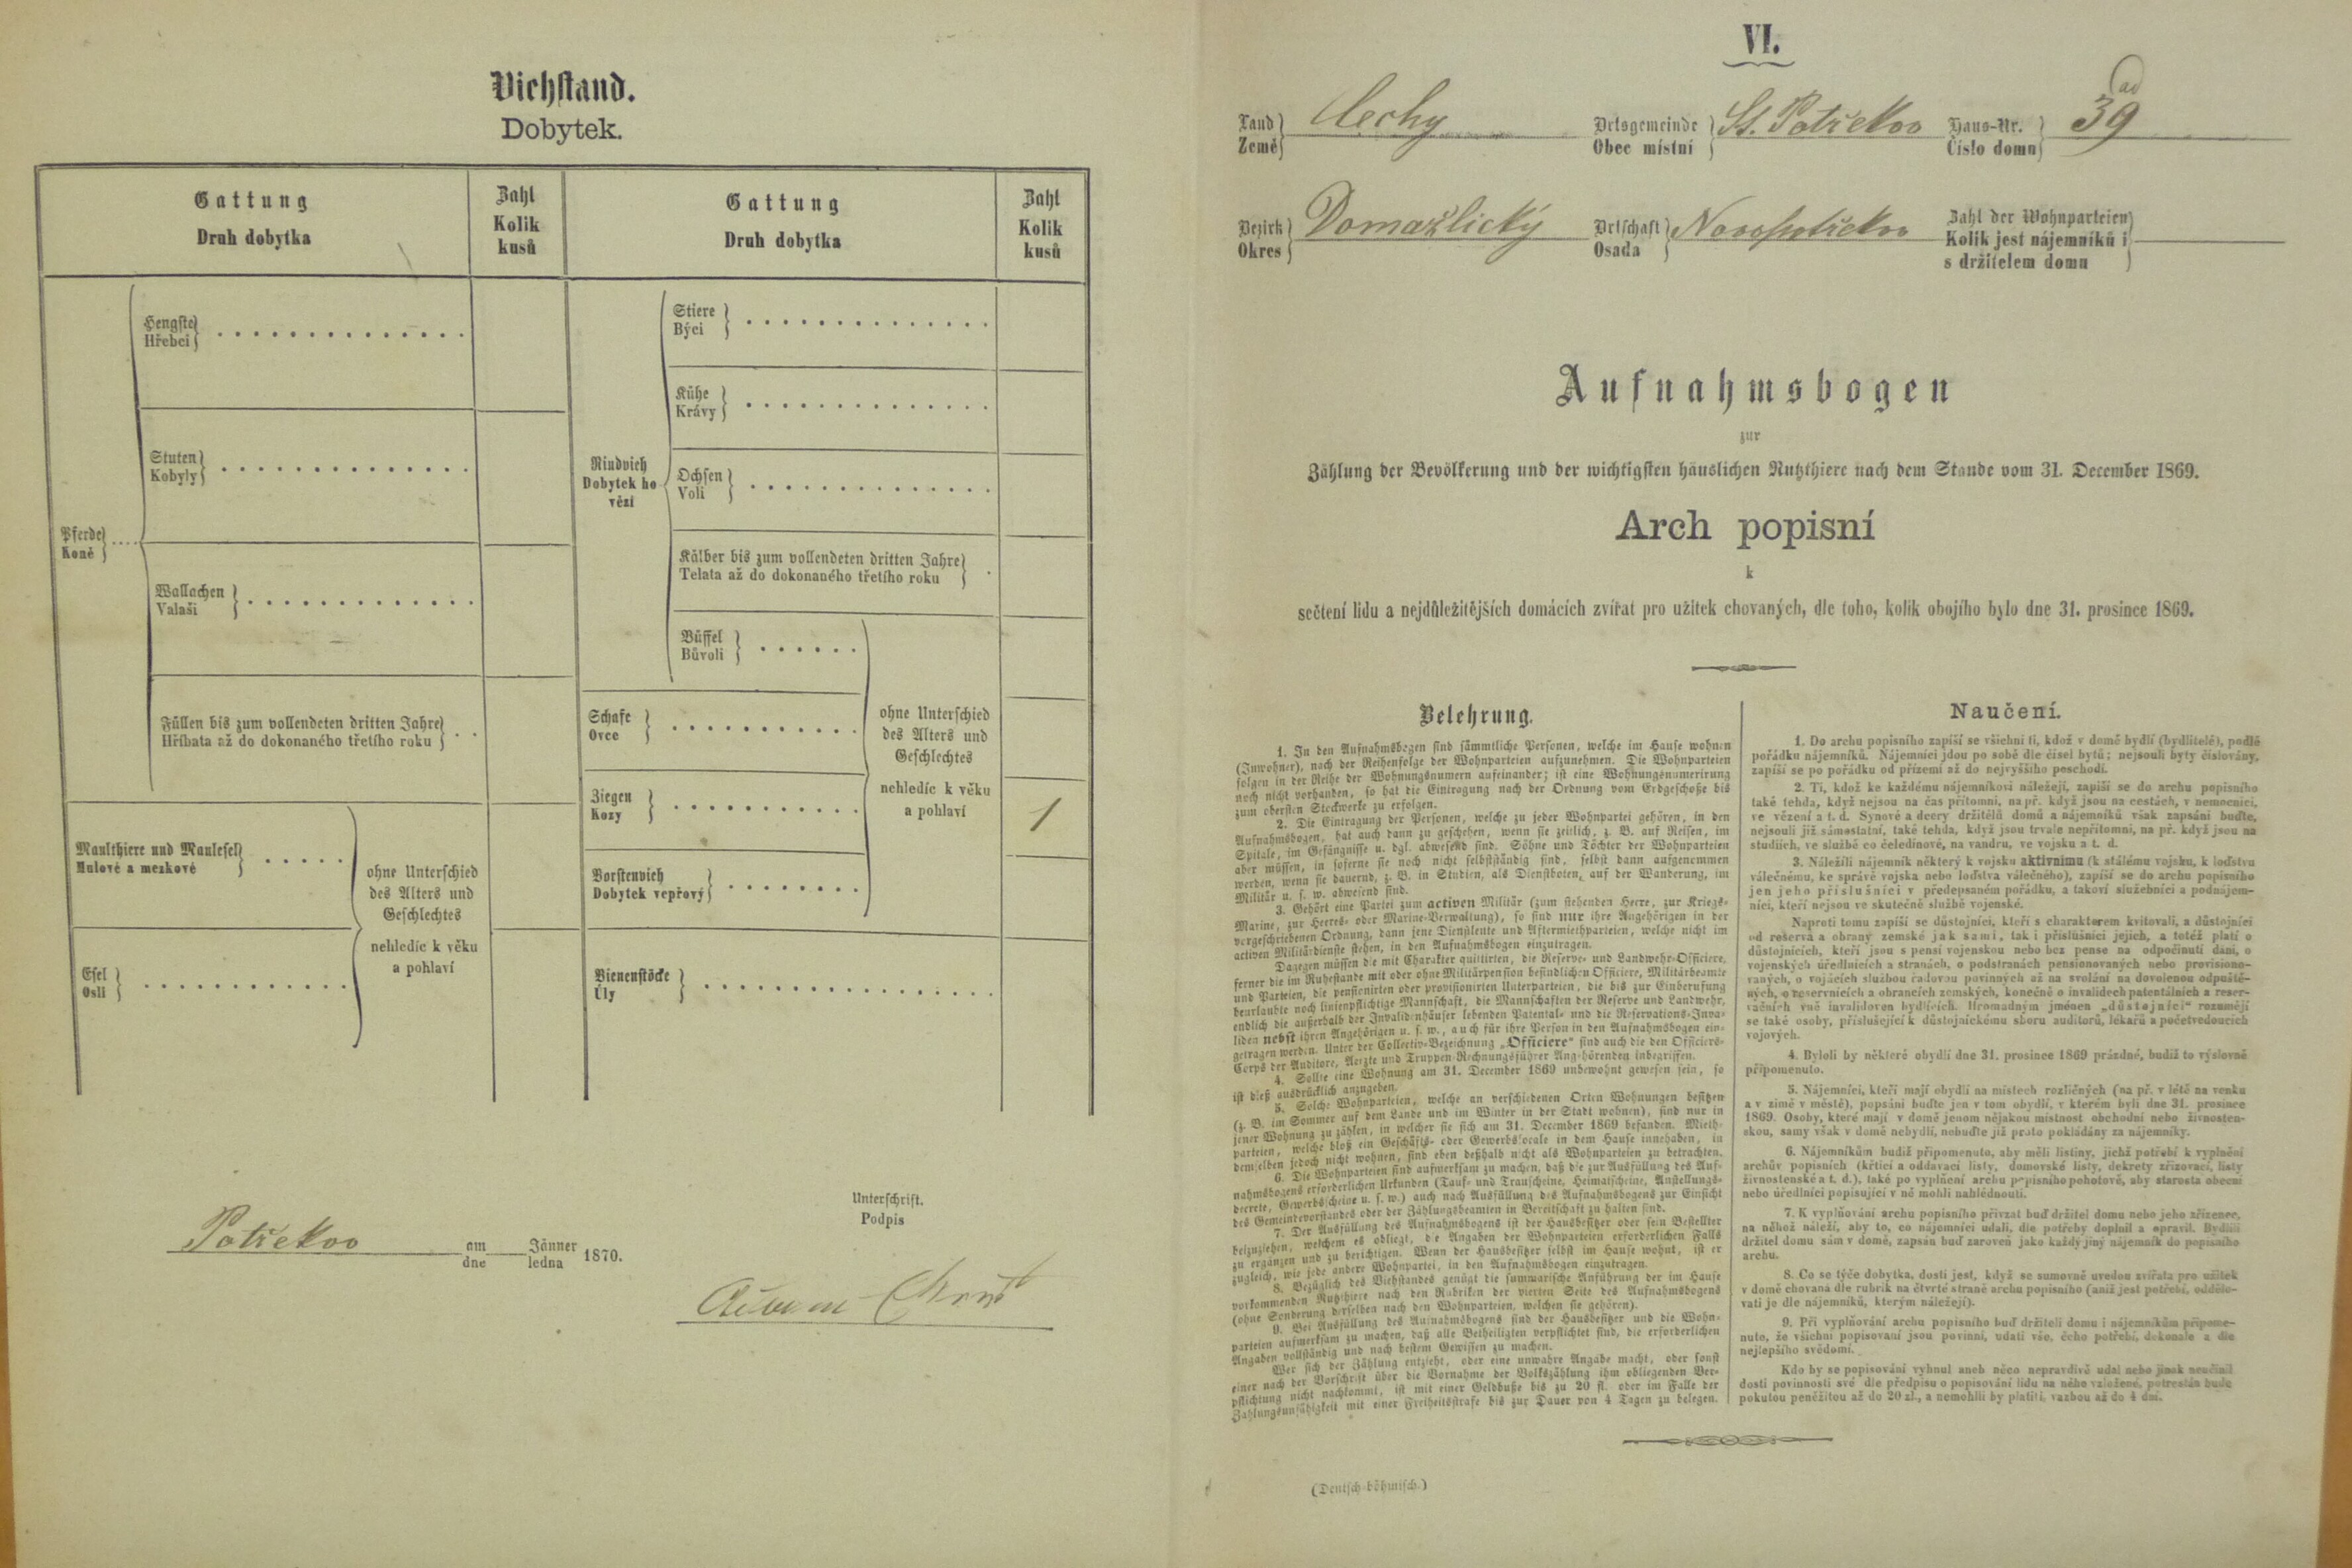 Viehstand.
Dobytek.
Gattung
Druh dobytka
Zahl
Kolik
kusů
Gattung
Druh dobytka
Zahl
Kolik
kusů
Pferde
Koně
Hengste
Hřebci
Stuten
Kobyly
Wallachen
Valaši
Füllen bis zum vollendeten dritten Jahre
Hříbata až do dokonaného třetího roku
Maulthiere und Maulesel
Mulové a mezkové
Esel
Osli
ohne Unterschied
des Alters und
Geschlechtes
nehledíc k věku
a pohlaví
Rindvieh
Dobytek ho
vězí
Stiere
Býci
Kühe
Krávy
Ochsen
Voli
Kälber bis zum vollendeten dritten Jahre
Telata až do dokonaného třetího roku
Büffel
Bůvoli
Schafe
Ovce
Ziegen
Kozy
1
Borstenvieh
Dobytek vepřový
ohne Unterschied
des Alters und
Geschlechtes
nehledíc k věku
a pohlaví
Bienenstöcke
Úly
Potřekov am dne Jänner ledna 1870.
Unterschrift.
Podpis
VI.
Land
Země
Čechy
Ortsgemeinde
Obec místní
St. Potřekov
Haus-Nr.
Číslo domu
ad
39
Bezirk
Okres
Domažlický
Ortschaft
Osada
Novopotřekov
Zahl der Wohnparteien
Kolik jest nájemníků i
s držitelem domu
Aufnahmsbogen
zur
Zählung der Bevölkerung und der wichtigsten häuslichen Nutzthiere nach dem Stande vom 31. December 1869.
Arch popisní
k
sečtení lidu a nejdůležitějších domácích zvířat pro užitek chovaných, dle toho, kolik obojího bylo dne 31. prosince 1869.
Belehrung.
1. In den Aufnahmsbogen sind sämmtliche Personen, welche im Hause wohnen
(Inwohner), nach der Reihenfolge der Wohnparteien aufzunehmen. Die Wohnparteien
folgen in der Reihe der Wohnungsnumern aufeinander; ist eine Wohnungsnumerirung
noch nicht vorhanden, so hat die Eintragung nach der Ordnung vom Erdgeschoße bis
zum obersten Stockwerke zu erfolgen.
2. Die Eintragung der Personen, welche zu jeder Wohnpartei gehören, in den
Aufnahmsbogen, hat auch dann zu geschehen, wenn sie zeitlich, z. B. auf Reisen, im
Spitale, im Gefängnisse u. dgl. abwesend sind. Söhne und Töchter der Wohnparteien
aber müssen, in soferne sie noch nicht selbstständig sind, selbst dann aufgenommen
werden, wenn sie dauernd, z. B. in Studien, als Dienstboten, auf der Wanderung, im
Militär u. s. w. abwesend sind.
3. Gehört eine Partei zum activen Militär (zum stehenden Heere, zur Kriegs-
Marine, zur Heeres- oder Marine-Verwaltung), so sind nur ihre Angehörigen in der
vorgeschriebenen Ordnung, dann jene Dienstleute und Aftermiethparteien, welche nicht im
activen Militärdienste stehen, in den Aufnahmsbogen einzutragen.
Dagegen müssen die mit Charakter quittirten, die Reserve- und Landwehr-Officiere,
ferner die im Ruhestande mit oder ohne Militärpension befindlichen Officiere, Militärbeamte
und Parteien, die pensionirten oder provisionirten Unterparteien, die bis zur Einberufung
beurlaubte noch linienpflichtige Mannschaft, die Mannschaften der Reserve und Landwehr,
endlich die außerhalb der Invalidenhäuser lebenden Patental- und die Reservations-Inva-
liden nebst ihren Angehörigen u. s. w., auch für ihre Person in den Aufnahmsbogen ein-
getragen werden. Unter der Collectiv-Bezeichnung „Officiere" sind auch die den Officiers-
Corps der Auditore, Aerzte und Truppen-Rechnungsführer Angehörenden inbegriffen.
4. Sollte eine Wohnung am 31. December 1869 unbewohnt gewesen sein, so
ist dieß ausdrücklich anzugeben.
5. Solche Wohnparteien, welche an verschiedenen Orten Wohnungen besitzen
(z. B. im Sommer auf dem Lande und im Winter in der Stadt wohnen), sind nur in
jener Wohnung zu zählen, in welcher sie sich am 31. December 1869 befanden. Mieth-
parteien, welche bloß ein Geschäfts- oder Gewerbslocale in dem Hause innehaben, in
demselben jedoch nicht wohnen, sind eben deßhalb nicht als Wohnparteien zu betrachten.
6. Die Wohnparteien sind aufmerksam zu machen, daß die zur Ausfüllung des Auf-
nahmsbogens erforderlichen Urkunden (Tauf- und Trauscheine, Heimatscheine, Anstellungs-
decrete, Gewerbsscheine u. s. w.) auch nach Ausfüllung des Aufnahmsbogens zur Einsicht
des Gemeindevorstandes oder der Zählungsbeamten in Bereitschaft zu halten sind.
7. Der Ausfüllung des Aufnahmsbogens ist der Hausbesitzer oder sein Bestellter
beizuziehen, welchem es obliegt, die Angaben der Wohnparteien erforderlichen Falls
zu ergänzen und zu berichtigen. Wenn der Hausbesitzer selbst im Hause wohnt, ist er
zugleich, wie jede andere Wohnpartei, in den Aufnahmsbogen einzutragen.
8. Bezüglich des Viehstandes genügt die summarische Anführung der im Hause
vorkommenden Nutzthiere nach den Rubriken der vierten Seite des Aufnahmsbogens
(ohne Sonderung derselben nach den Wohnparteien, welchen sie gehören).
9. Bei Ausfüllung des Aufnahmsbogens sind der Hausbesitzer und die Wohn-
parteien aufmerksam zu machen, daß alle Betheiligten verpflichtet sind, die erforderlichen
Angaben vollständig und nach bestem Gewissen zu machen.
Wer sich der Zählung entzieht, oder eine unwahre Angabe macht, oder sonst
einer nach der Vorschrift über die Vornahme der Volkszählung ihm obliegenden Ver-
pflichtung nicht nachkommt, ist mit einer Geldbuße bis zu 20 fl. oder im Falle der
Zahlungsunfähigkeit mit einer Freiheitsstrafe bis zur Dauer von 4 Tagen zu belegen.
Naučení.
1. Do archu popisního zapíší se všichni ti, kdož v domě bydlí (bydlitelé), podlé
pořádku nájemníků. Nájemníci jdou po sobě dle čísel bytů; nejsouli byty číslovány,
zapíší se po pořádku od přízemí až do nejvyššího poschodí.
2. Ti, kdož ke každému nájemníkovi náležejí, zapíší se do archu popisního
také tehda, když nejsou na čas přítomni, na př. když jsou na cestách, v nemocnici,
ve vězení a t. d. Synové a dcery držitelů domů a nájemníků však zapsáni buďte,
nejsouli již sámostatní, také tehda, když jsou trvale nepřítomni, na př. když jsou na
studiích, ve službě co čeledínové, na vandru, ve vojsku a t. d.
3. Náležíli nájemník některý k vojsku aktivnímu (k stálému vojsku, k loďstvu
válečnému, ke správě vojska nebo loďstva válečného), zapíší se do archu popisního
jen jeho příslušníci v předepsaném pořádku, a takoví služebníci a podnájem-
níci, kteří nejsou ve skutečné službě vojenské.
Naproti tomu zapíší se důstojníci, kteří s charakterem kvitovali, a důstojníci
od reservy a obrany zemské jak sami, tak i příslušníci jejich, a totéž platí o
důstojnících, kteří jsou s pensí vojenskou nebo bez pense na odpočinutí dáni, o
vojenských úřednících a stranách, o podstranách pensionovaných nebo provisiono-
vaných, o vojácích službou řadovou povinných až na svolání na dovolenou odpuště-
ných, o reservnicích a obrancích zemských, konečně o invalidech patentálních a reser-
vačních vně invalidoven bydlících. Hromadným jménem „důstojníci" rozumějí
se také osoby, příslušející k důstojnickému sboru auditorů, lékařů a početvedoucích
vojových.
4. Byloli by některé obydlí dne 31. prosince 1869 prázdné, budiž to výslovně
připomenuto.
5. Nájemníci, kteří mají obydlí na místech rozličných (na př. v létě na venku
a v zimě v městě), popsáni buďte jen v tom obydlí, v kterém byli dne 31. prosince
1869. Osoby, které mají v domě jenom nějakou místnost obchodní nebo živnosten-
skou, samy však v domě nebydlí, nebuďte již proto pokládány za nájemníky.
6. Nájemníkům budiž připomenuto, aby měli listiny, jichž potřebí k vyplnění
archův popisních (křtící a oddavací listy, domovské listy, dekrety zřizovací, listy
živnostenské a t. d.), také po vyplnění archu popisního pohotově, aby starosta obecní
nebo úředlníci popisující v ně mohli nahlédnouti.
7. K vyplňování archu popisního přivzat buď držitel domu nebo jeho zřízenec,
na něhož náleží, aby to, co nájemníci udali, dle potřeby doplnil a opravil. Bydlíli
držitel domu sám v domě, zapsán buď zároveň jako každý jiný nájemník do popisního
archu.
8. Co se týče dobytka, dosti jest, když se sumovně uvedou zvířata pro užitek
v domě chovaná dle rubrik na čtvrté straně archu popisního (aniž jest potřebí, oddělo-
vati je dle nájemníků, kterým náležejí).
9. Při vyplňování archu popisního buď držiteli domu i nájemníkům připome-
nuto, že všichni popisovaní jsou povinni, udati vše, čeho potřebí, dokonale a dle
nejlepšího svědomí.
Kdo by se popisování vyhnul aneb něco nepravdivě udal nebo jinak neučinil
dosti povinnosti své dle předpisu o popisování lidu na něho vzložené, potrestán bude
pokutou peněžitou až do 20 zl., a nemohlli by platiti, vazbou až do 4 dní.
(Deutsch-böhmisch.)